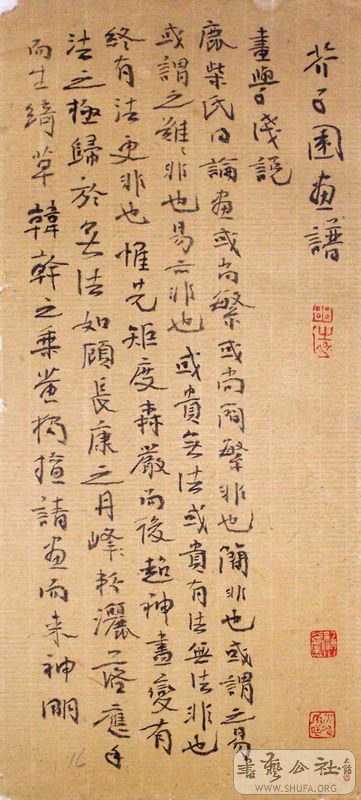 芥子園画譜
畫學淺説
鹿柴氏曰論画或尚繁或尚简繁非也簡非也或謂之易
或謂之難〻非也易亦非也或貴無法或貴有法無法非也
終有法更非也惟先矩度森嚴而後超神盡變有
法之極歸於無法如顧長康之灑落應手
而生綺草韓幹之乘黄獨擅請画而来神明
16
書藝公社
WWW.SHUFA.ORG